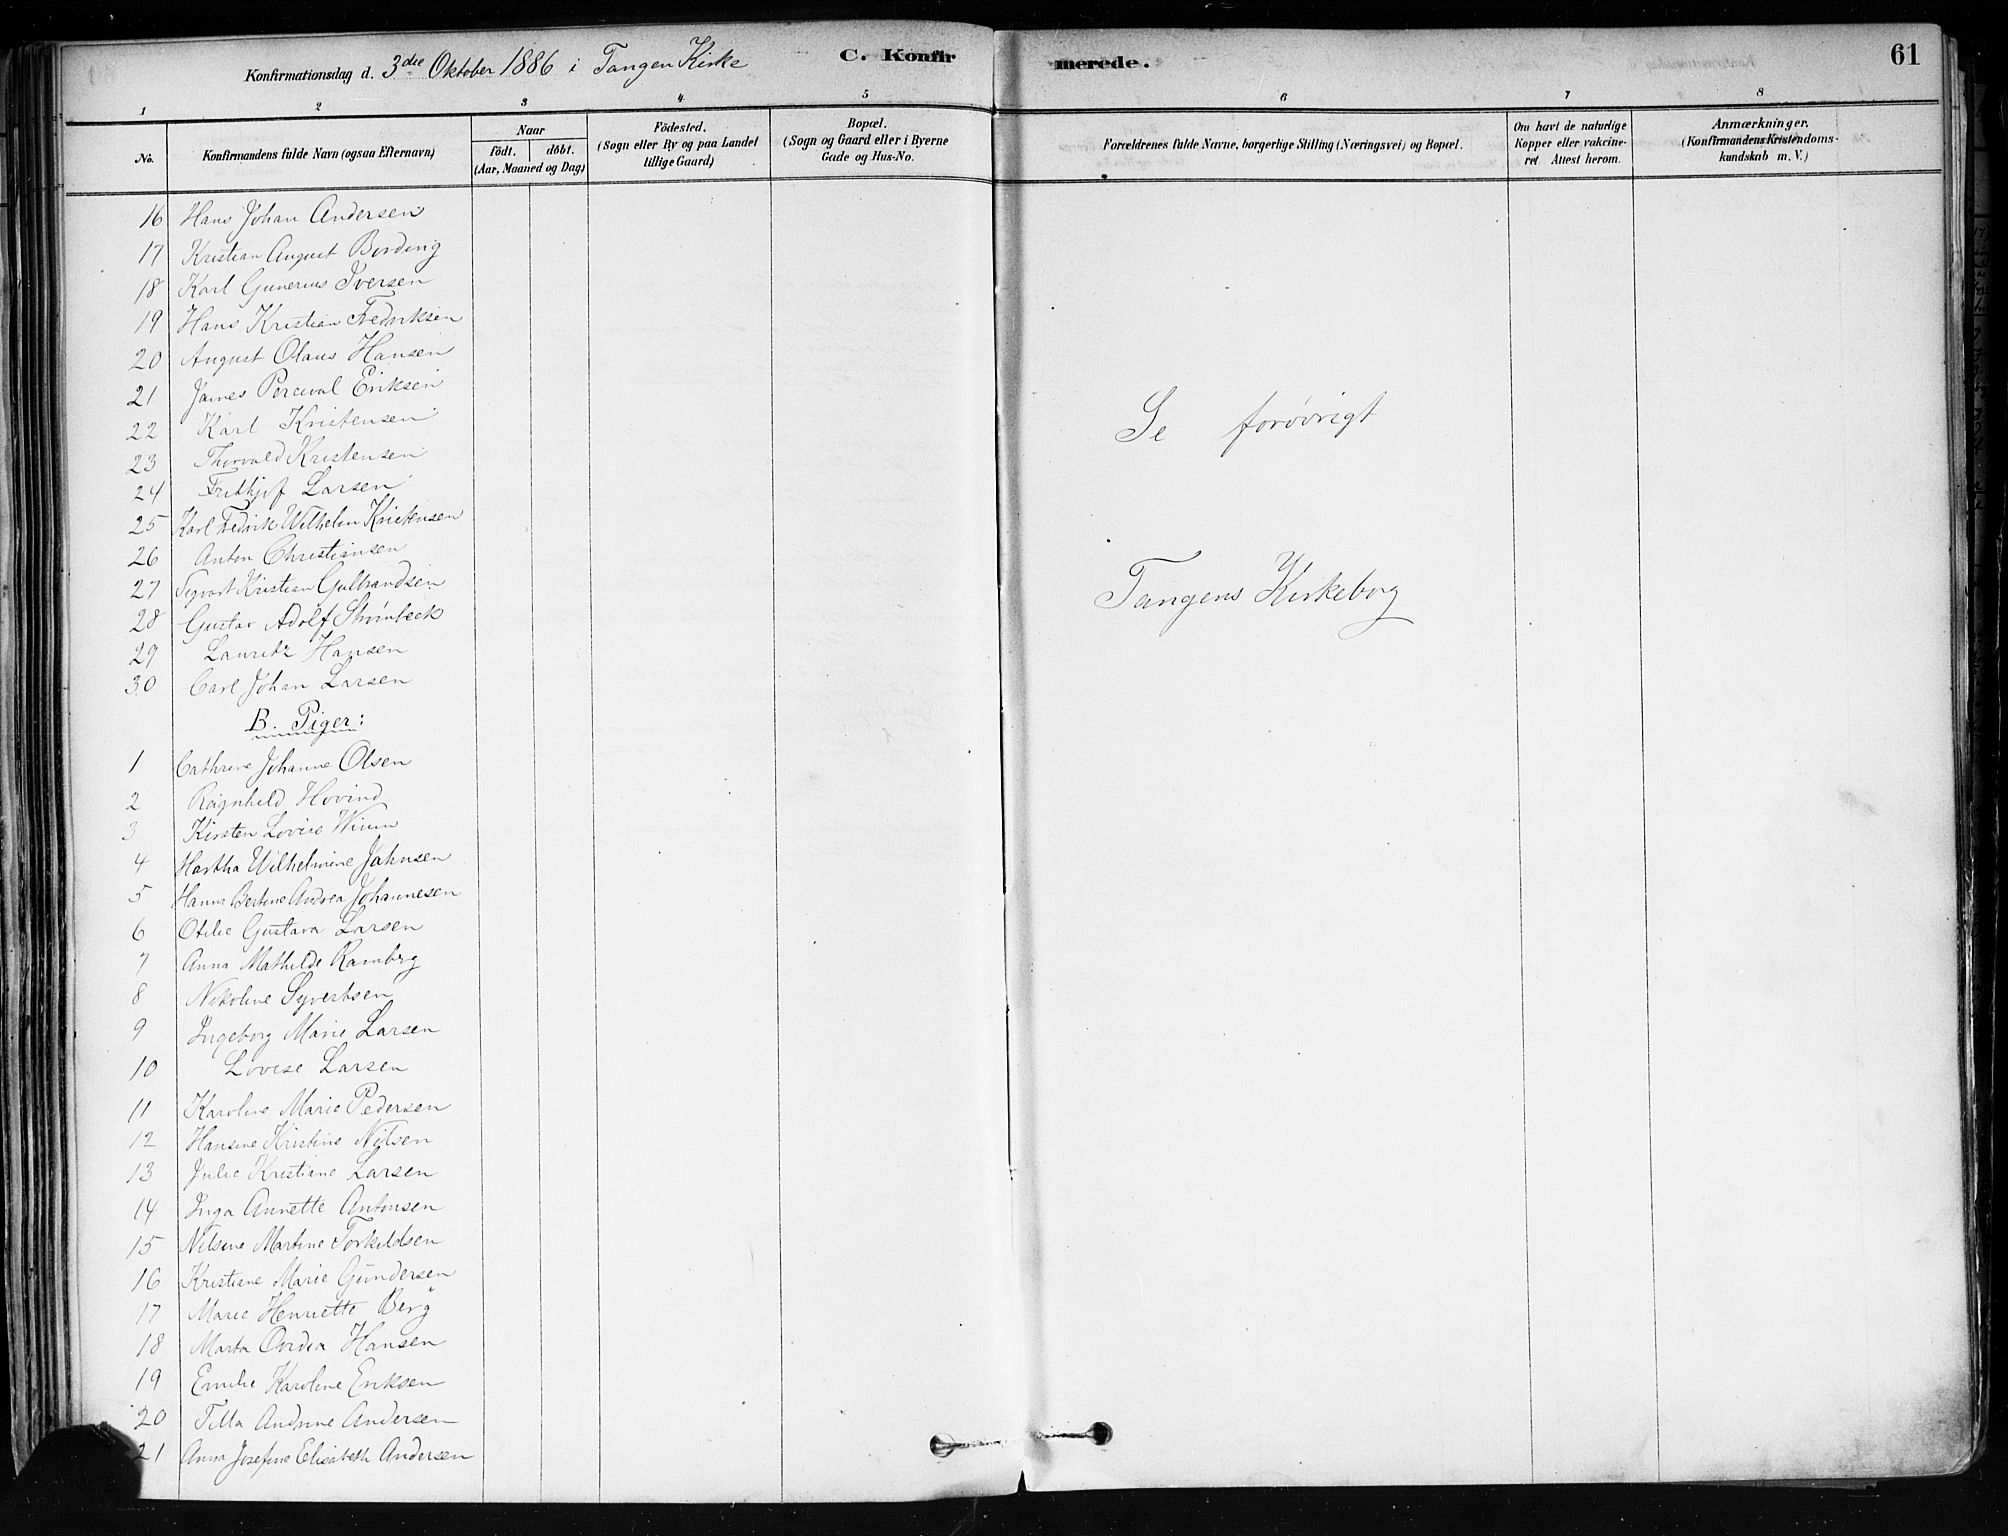 C. Konfirmerede.
61
Konfirmationsdag d. 3die Oktober 1886 i Tangen Kirke
1 2 3 4 5 6 7 8
No.
Konfirmandens fulde Navn (ogsaa Efternavn)
Naar
födt. döbt.
(Aar, Maaned og Dag)
Födested.
(Sogn eller By og paa Landet
tillige Gaard)
Bopæl.
(Sogn og Gaard eller i Byerne
Gade og Hus-No.
Forældrenes fulde Navne, borgerlige Stilling (Næringsvei) og Bopæl.
Om havt de naturlige
Kopper eller vakcine-
ret Attest herom.
Anmærkninger.
(Konfirmandens Kristendoms-
kundskab m. V.)
16 Hans Johan Andersen
17 Kristian August Bording
18 Karl Gunerius Iversen
19 Hans Kristian Fredriksen
20 August Olaus Hansen
21 James Perceval Eriksen
22 Karl Kristensen
23 Thorvald Kristensen
24 Frithjof Larsen
25 Karl Fredrik Wilhelm Kristensen
26 Anton Christiansen
27 Sigvart Kristian Gulbrandsen
28 Gustav Adolf Strömbeck
29 Lauritz Hansen
30 Carl Johan Larsen
B. Piger:
1 Cathrine Johanne Olsen
2 Ragnhild Hovind
3 Kirsten Lovise
4 Hartha Wilhelmine Jahnsen
5 Hanna Bertine Andrea Johannesen
6 Otilie Gustava Larsen
7 Anna Mathilde Ramberg
8 Nikoline Syvertsen
9 Ingeborg Marie Larsen
10 Lovise Larsen
11 Karoline Marie Pedersen
12 Hansine Kristine Nilsen
13 Julie Kristiane Larsen
14 Inga Annette Antonsen
15 Nilsine Martine Torkildsen
16 Kristiane Marie Gundersen
17 Marie Henriette Berg
18 Marta Ovidia Hansen
19 Emilie Karoline Eriksen
20 Tilla Andrine Andersen
21 Anna Josefine Elisabeth Andersen
Se forøvrigt
Tangens Kirkebog